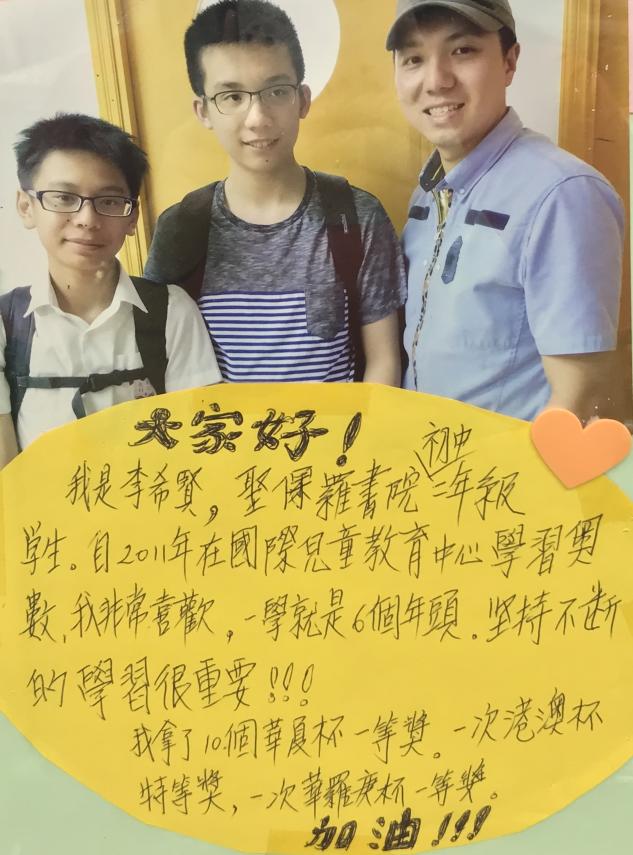 大家好！
我是李希賢，聖保羅書院初中三年級
学生。自2011年在國際兒童教育中心學習奧
數，我非常喜歡，一學就是6個年頭。坚持不断
的學習很重要！！！
我拿了10個華夏杯一等獎。一次港澳杯
特等獎，一次華羅庚杯一等獎。
加油！！！